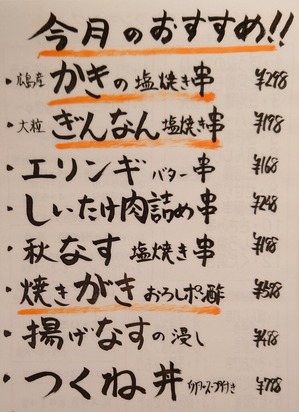 今月のおすすめ!!
・広島産 かきの塩焼き串 ¥298
・大粒 ぎんなん塩焼き串 ¥198
・エリンギバター串 ¥168
・しいたけ肉詰め串 ¥248
・秋なす塩焼き串 ¥198
・焼きがきおろしポン酢 ¥598
・揚げなすの浸し ¥498
・つくね丼 スープ付き ¥798